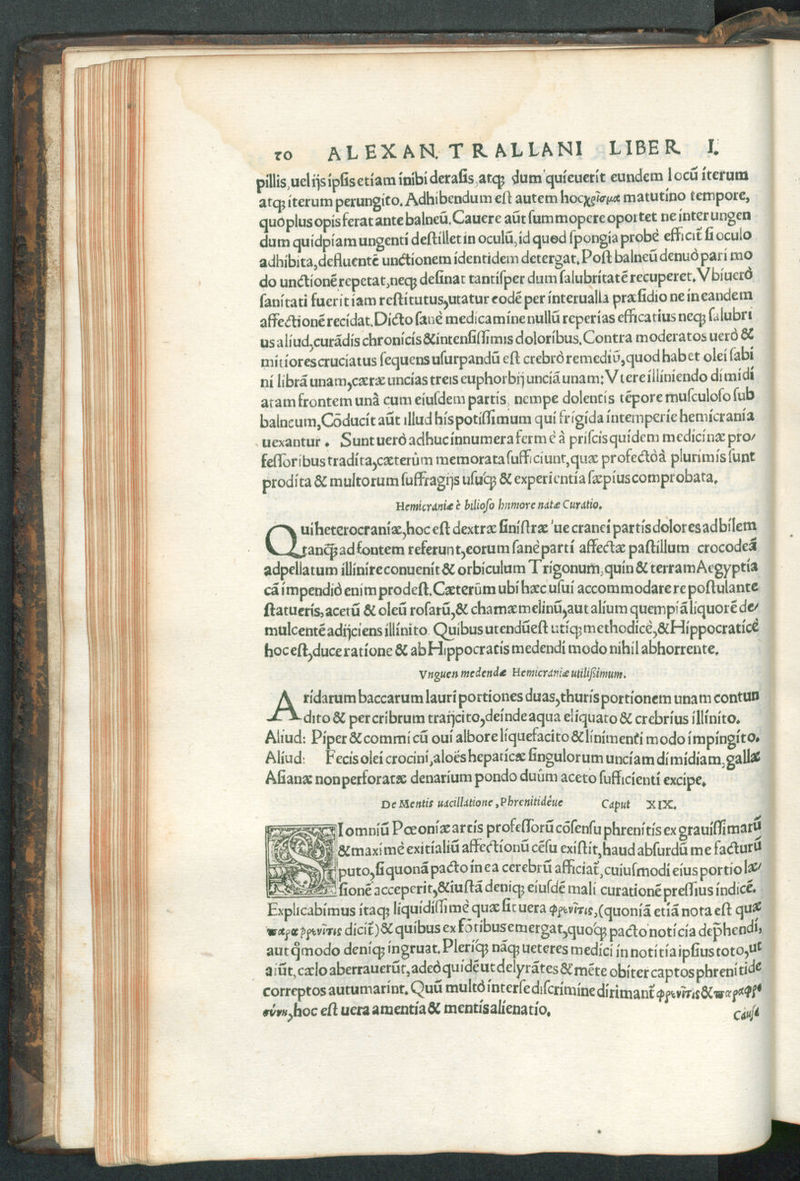 10 ALEXAN. TRALLANI LIBER I.
pillis, uel ijs ipſis etiam inibi deraſis, atq; dum quieuerit eundem locũ iterum
atq; iterum perungito. Adhibendum eſt autem hoc χρῖσμα matutino tempore,
quo plus opis ferat ante balneũ. Cauere aũt ſummopere oportet ne inter ungen
dum quidpiam ungenti deſtillet in oculũ, id quod ſpongia probè efficit̃ ſi oculo
adhibita, defluentẽ unctionem identidem detergat. Poſt balneũ denuò pari mo
do unctionẽ repetat, neq; deſinat tantiſper dum ſalubritatẽ recuperet. Vbi uerò
ſanitati fuerit iam reſtitutus, utatur eodẽ per interualla præſidio ne in eandem
affectionẽ recidat. Dicto ſanè medicamine nullũ reperias efficatius neq; ſalubri
us aliud, curãdis chronicis & intenſiſſimis doloribus. Contra moderatos uerò &
mitiores cruciatus ſequens uſurpandũ eſt crebrò remediũ, quod habet olei ſabi
ni librã unam, cæræ uncias treis euphorbij unciã unam: Vtere illiniendo dimidi
atam frontem unà cum eiuſdem partis nempe dolentis tẽpore muſculoſo ſub
balneum, Cõducit aũt illud his potiſſimum qui frigida intemperie hemicrania
uexantur. Sunt uerò adhuc innumera fermè à priſcis quidem medicinæ pro/
feſſoribus tradita, cæterùm memorata ſufficiunt, quæ profectò à plurimis ſunt
prodita & multorum ſuffragijs uſuq; & experientia ſæpius comprobata.
Hemicraniæ è bilioſo humore natæ Curatio.
Qui heterocraniæ, hoc eſt dextræ ſiniſtræ 've cranei partis dolores ad bilem
tanq̃; ad fontem referunt, eorum ſanè parti affectæ paſtillum crocodeã
adpellatum illinire conuenit & orbiculum Trigonum, quin & terram Aegyptia
cã impendiò enim prodeſt. Cæterùm ubi hæc uſui accommodare re poſtulante
ſtatueris, acetũ & oleũ roſarũ, & chamæmelinũ, aut alium quempiã liquorẽ de/
mulcentẽ adijciens illinito. Quibus utendũ eſt utiq; methodicè, & Hippocraticè
hoc eſt, duce ratione & ab Hippocratis medendi modo nihil abhorrente.
Vnguen medendæ Hemicraniæ utiliſſimum.
Aridarum baccarum lauri portiones duas, thuris portionem unam contun
dito & per cribrum traijcito, deinde aqua eliquato & crebrius illinito.
Aliud: Piper & commi cũ oui albore liquefacito & linimenti modo impingito.
Aliud: Fecis olei crocini, aloës hepaticæ ſingulorum unciam dimidiam, gallæ
Aſianæ non perforatæ denarium pondo duûm aceto ſufficienti excipe.
De Mentis uacillatione, Phrenitidéue Caput XIX.
SI omniũ Pœoniæ artis profeſſorũ cõſenſu phrenitis ex grauiſſimarũ
& maximè exitialiũ affectionũ cẽſu exiſtit, haud abſurdũ me facturũ
puto, ſi quonã pacto in ea cerebrũ afficiat̃, cuiuſmodi eius portio læ/
ſionẽ acceperit, & iuſtã deniq; eiuſdẽ mali curationẽ preſſius indicẽ.
Explicabimus itaq; liquidiſſimè quæ ſit uera φρενῖτις, (quoniã etiã nota eſt quæ
παραφρενῖτις dicit̃) & quibus ex fõtibus emergat, quoq; pacto noticia dep̃hendi,
aut q̃modo deniq; ingruat. Pleriq; nãq; ueteres medici in notitia ipſius toto, ut
aiũt, cælo aberrauerũt, adeò quidẽ ut delyrãtes & mẽte obiter captos phrenitide
correptos autumarint. Quũ multò inter ſe diſcrimine dirimant̃ φρενῖτις & παραφρο
σύνη, hoc eſt uera amentia & mentis alienatio.
Cauſa